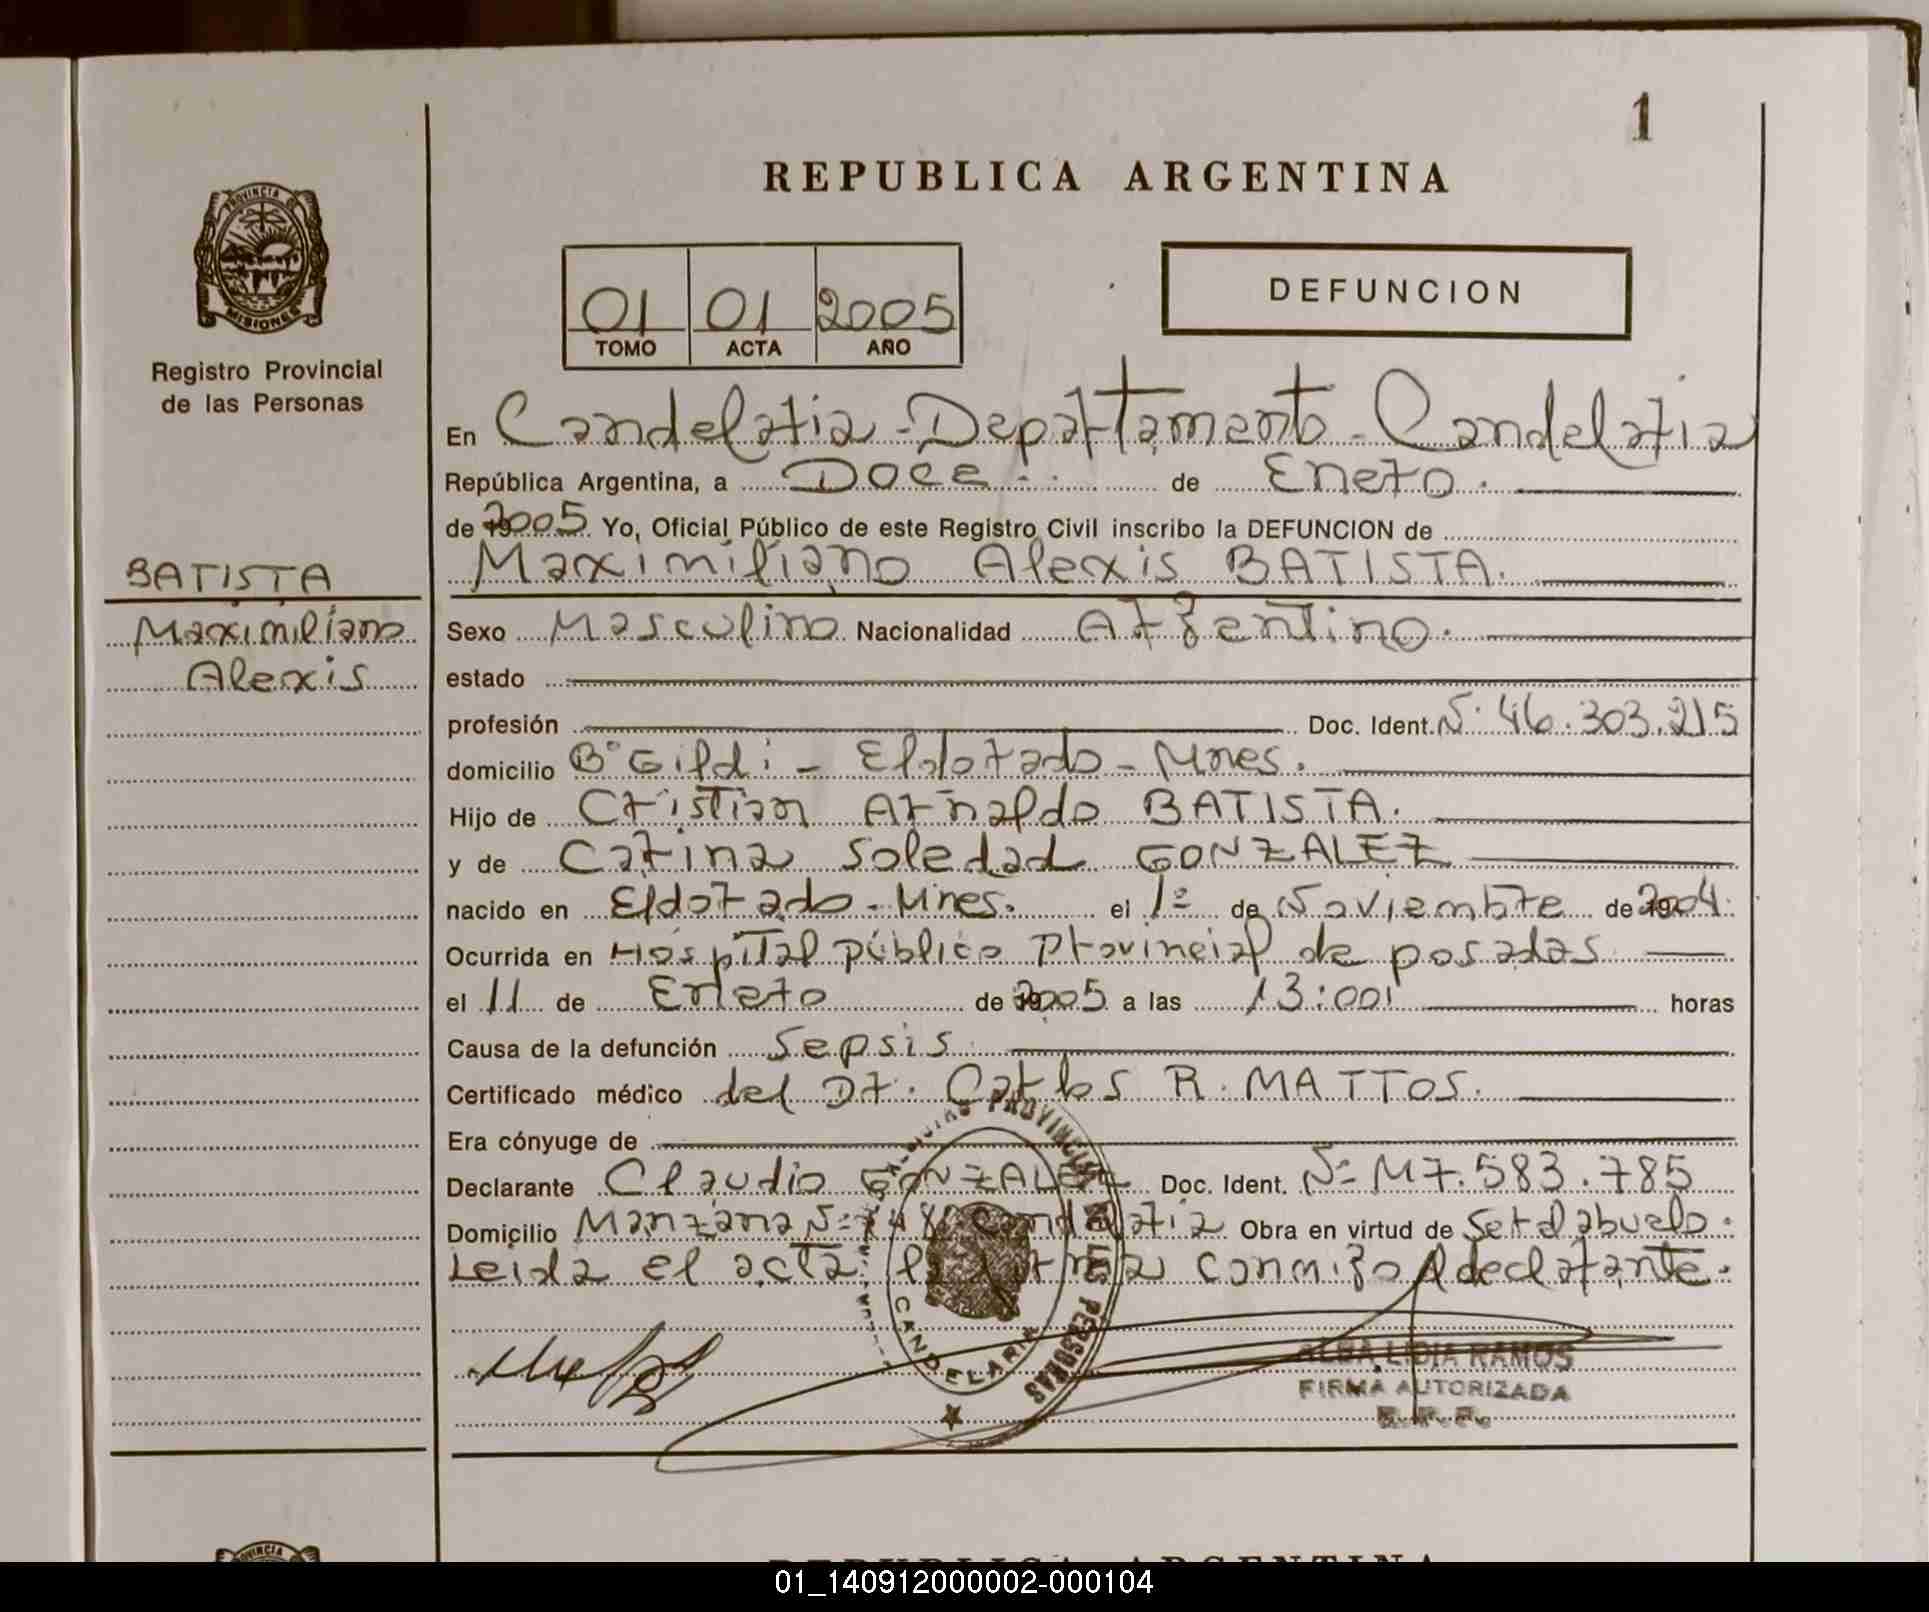 1
REPUBLICA ARGENTINA
PROVINCIA DE
MISIONES
Registro Provincial
de las Personas
01 01 2005
TOMO ACTA AÑO
DEFUNCION
En Candelaria - Departamento - Candelaria
República Argentina, a Doce de Enero.
de 2005 Yo, Oficial Público de este Registro Civil inscribo la DEFUNCION de
BATISTA
Maximiliano
Alexis
Maximiliano Alexis BATISTA.
Sexo Masculino Nacionalidad Argentino.
estado
profesión Doc. Ident. Nº 46.303.215
domicilio Bº Gildi - Eldorado - Mnes.
Hijo de Cristian Arnaldo BATISTA.
y de Carina Soledad GONZALEZ
nacido en Eldorado - Mnes. el 1º de Noviembre de 2004.
Ocurrida en Hospital público Provincial de posadas
el 11 de Enero de 2005 a las 13:00 horas
Causa de la defunción Sepsis
Certificado médico del Dr. Carlos R. MATTOS.
Era cónyuge de
Declarante Claudio GONZALEZ Doc. Ident. Nº M7.583.785
Domicilio Manzana Nº Candelaria Obra en virtud de Ser el abuelo.
Leida el acta la firma conmigo el declarante.
PROVINCIAL DE LAS PERSONAS
CANDELARIA
ALBA LIDIA RAMOS
FIRMA AUTORIZADA
PROVINCIA
REPUBLICA ARGENTINA
01_140912000002-000104